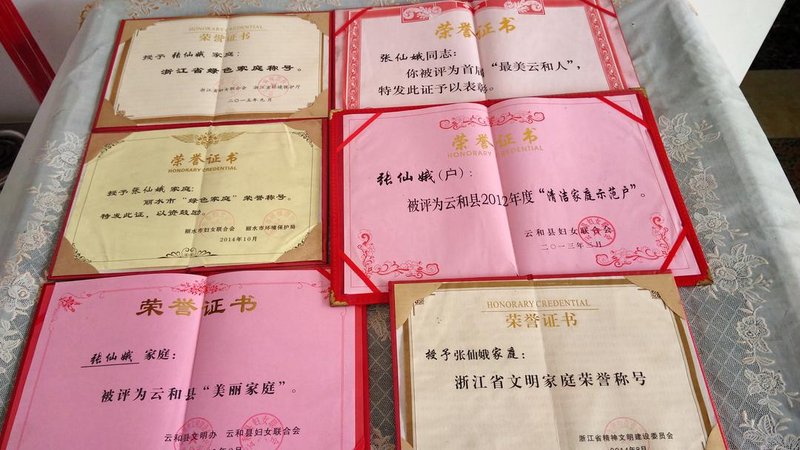 HONORARY CREDENTIAL
荣誉证书
授予 张仙娥 家庭:
浙江省绿色家庭称号。
浙江省妇女联合会 浙江省环境保护厅
二〇一五年九月
荣誉证书
张仙娥同志:
你被评为首届“最美云和人”,
特发此证予以表彰。
荣誉证书
HONORARY CREDENTIAL
授予 张仙娥 家庭:
丽水市“绿色家庭”荣誉称号。
特发此证,以资鼓励。
丽水市妇女联合会 丽水市环境保护局
2014年10月
荣誉证书
HONORARY CREDENTIAL
张仙娥(户):
被评为云和县2012年度“清洁家庭示范户”。
云和县妇女联合会
二〇一三年 月
荣誉证书
张仙娥 家庭:
被评为云和县“美丽家庭”。
云和县文明办 云和县妇女联合会
HONORARY CREDENTIAL
荣誉证书
授予张仙娥家庭:
浙江省文明家庭荣誉称号
浙江省精神文明建设委员会
2014年8月